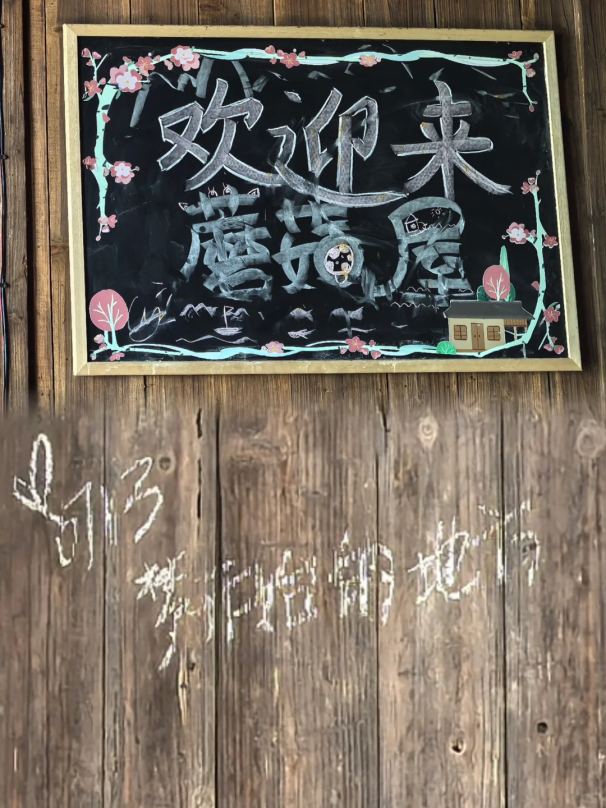 欢迎来
蘑菇屋
梦开始的地方